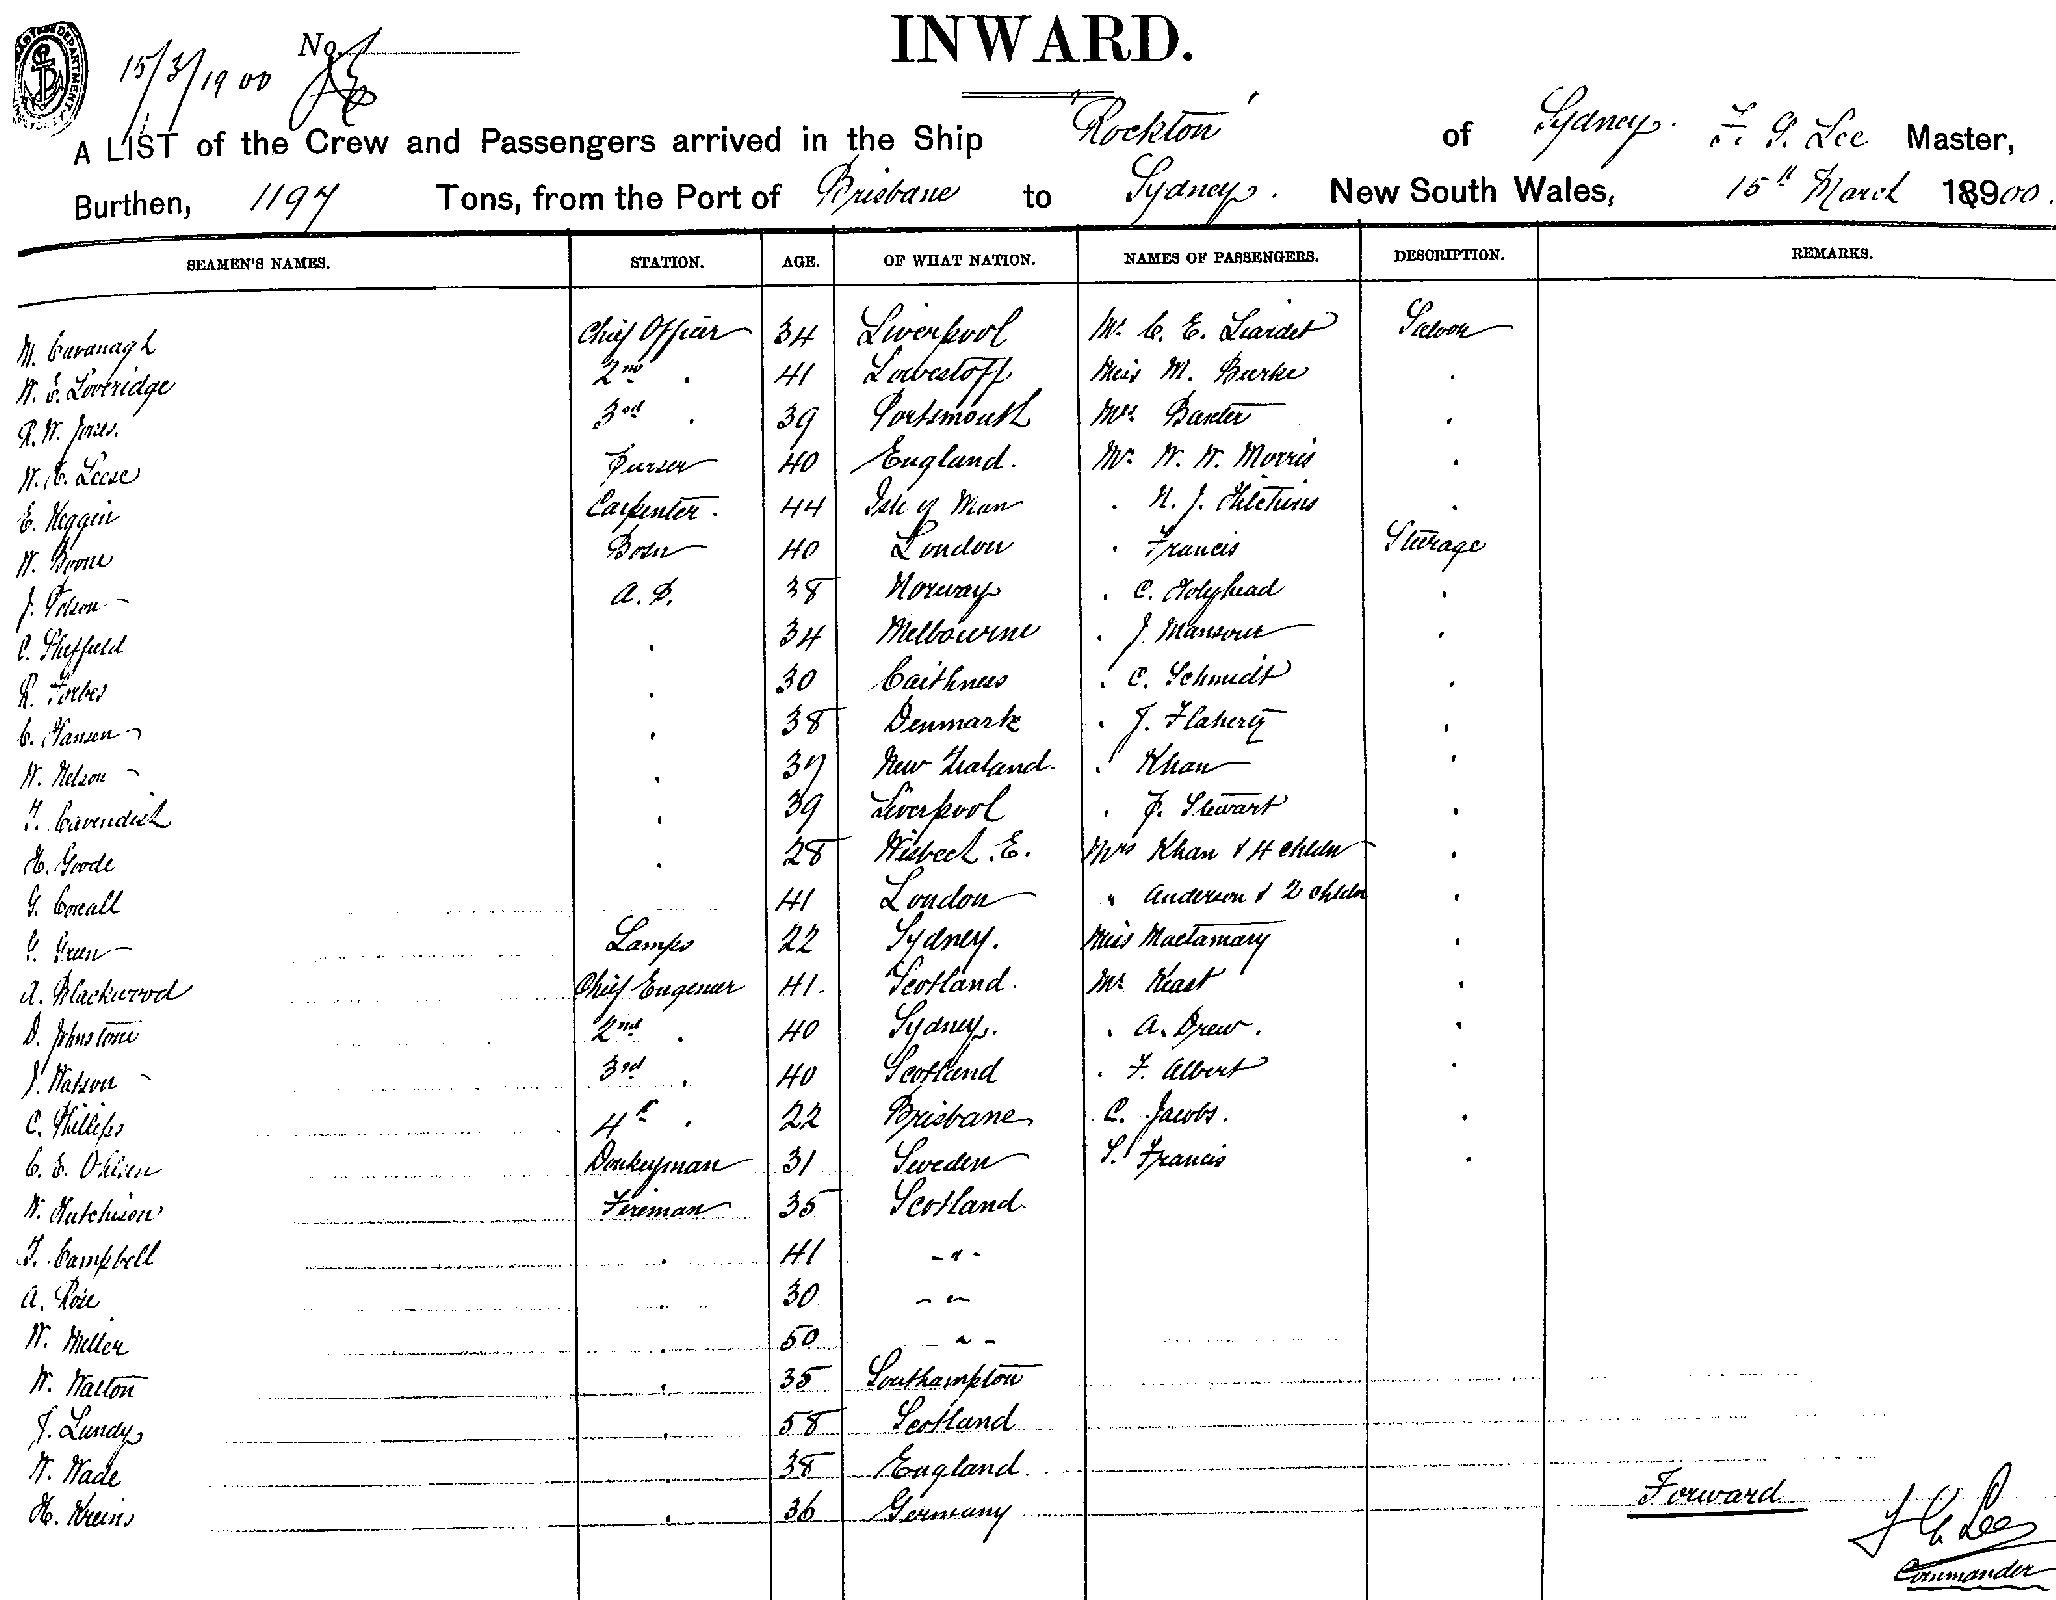 INWARD.
15/3/1900 No.
A LIST of the Crew and Passengers arrived in the Ship "Rockton" of Sydney. F. G. Lee Master,
Burthen, 1197 Tons, from the Port of Brisbane to Sydney. New South Wales, 15th March 18900.
SEAMEN'S NAMES. STATION. AGE. OF WHAT NATION. NAMES OF PASSENGERS. DESCRIPTION. REMARKS.
M. Cavanagh Chief Officer 34 Liverpool Mr. C. E. Liardet Saloon
W. E. Loveridge 2nd " 41 Lowestoff Miss M. Burke "
R. W. Jones. 3rd " 39 Portsmouth Mrs Baxter "
W. C. Leese Purser 40 England. Mr. W. W. Morris "
E. Keggin Carpenter. 44 Isle of Man " N. J. Hitchins "
W. Boone Bosn 40 London " Francis Steerage
J. Polson A. B. 38 Norway " C. Holyhead "
C. Sheffield " 34 Melbourne " J. Mansour "
R. Forbes " 30 Caithness " C. Schmidt "
C. Hansen " 38 Denmark " J. Flaherty "
W. Nelson " 37 New Zealand. " Khan "
F. Cavendish " 39 Liverpool " J. Stewart "
H. Goode " 28 Wisbech. E. Mrs Khan & 4 childn "
G. Coxall 41 London " Anderson & 2 childn "
G. Green Lamps 22 Sydney. Miss Mactamary "
A. Blackwood Chief Engeneer 41. Scotland. Mr Keast "
D. Johnstone 2nd " 40 Sydney. " A. Drew. "
J. Watson 3rd " 40 Scotland " F. Albert "
C. Phillips 4th " 22 Brisbane " C. Jacobs. "
C. E. Ohlsen Donkeyman 31 Sweden S. Francis "
W. Hutchison Fireman 35 Scotland
F. Campbell " 41 - " -
A. Rose " 30 - " -
W. Miller " 50 " -
W. Walton " 35 Southampton
J. Lundy " 58 Scotland
W. Wade " 38 England.
H. Kreins " 36 Germany
Forward
F G Lee
Commander